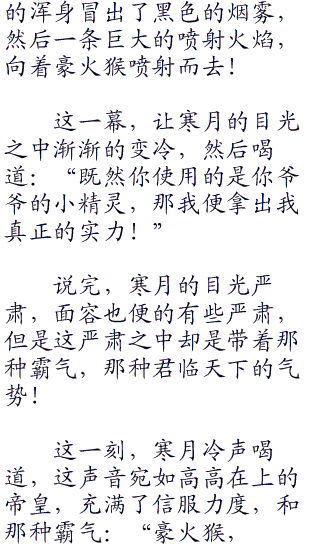 的浑身冒出了黑色的烟雾，
然后一条巨大的喷射火焰，
向着豪火猴喷射而去！
这一幕，让寒月的目光
之中渐渐的变冷，然后喝
道：“既然你使用的是你爷
爷的小精灵，那我便拿出我
真正的实力！”
说完，寒月的目光严
肃，面容也便的有些严肃，
但是这严肃之中却是带着那
种霸气，那种君临天下的气
势！
这一刻，寒月冷声喝
道，这声音宛如高高在上的
帝皇，充满了信服力度，和
那种霸气：“豪火猴，